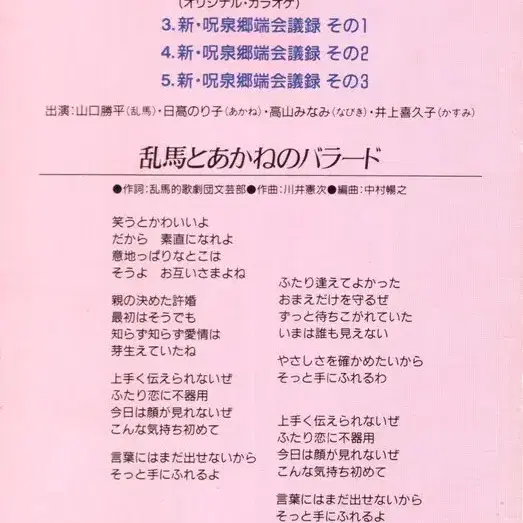 (オリジナル・カラオケ)
3.新・呪泉郷端会議録 その1
4.新・呪泉郷端会議録 その2
5.新・呪泉郷端会議録 その3
出演:山口勝平(乱馬)・日髙のり子(あかね)・高山みなみ(なびき)・井上喜久子(かすみ)
乱馬とあかねのバラード
●作詞:乱馬的歌劇団文芸部●作曲:川井憲次●編曲:中村暢之
笑うとかわいいよ
だから 素直になれよ
意地っぱりなとこは
そうよ お互いさまよね
親の決めた許婚
最初はそうでも
知らず知らず愛情は
芽生えていたね
上手く伝えられないぜ
ふたり恋に不器用
今日は顔が見れないぜ
こんな気持ち初めて
言葉にはまだ出せないから
そっと手にふれるよ
ふたり逢えてよかった
おまえだけを守るぜ
ずっと待ちこがれていた
いまは誰も見えない
やさしさを確かめたいから
そっと手にふれるわ
上手く伝えられないぜ
ふたり恋に不器用
今日は顔が見れないぜ
こんな気持ち初めて
言葉にはまだ出せないから
そっと手にふれるよ